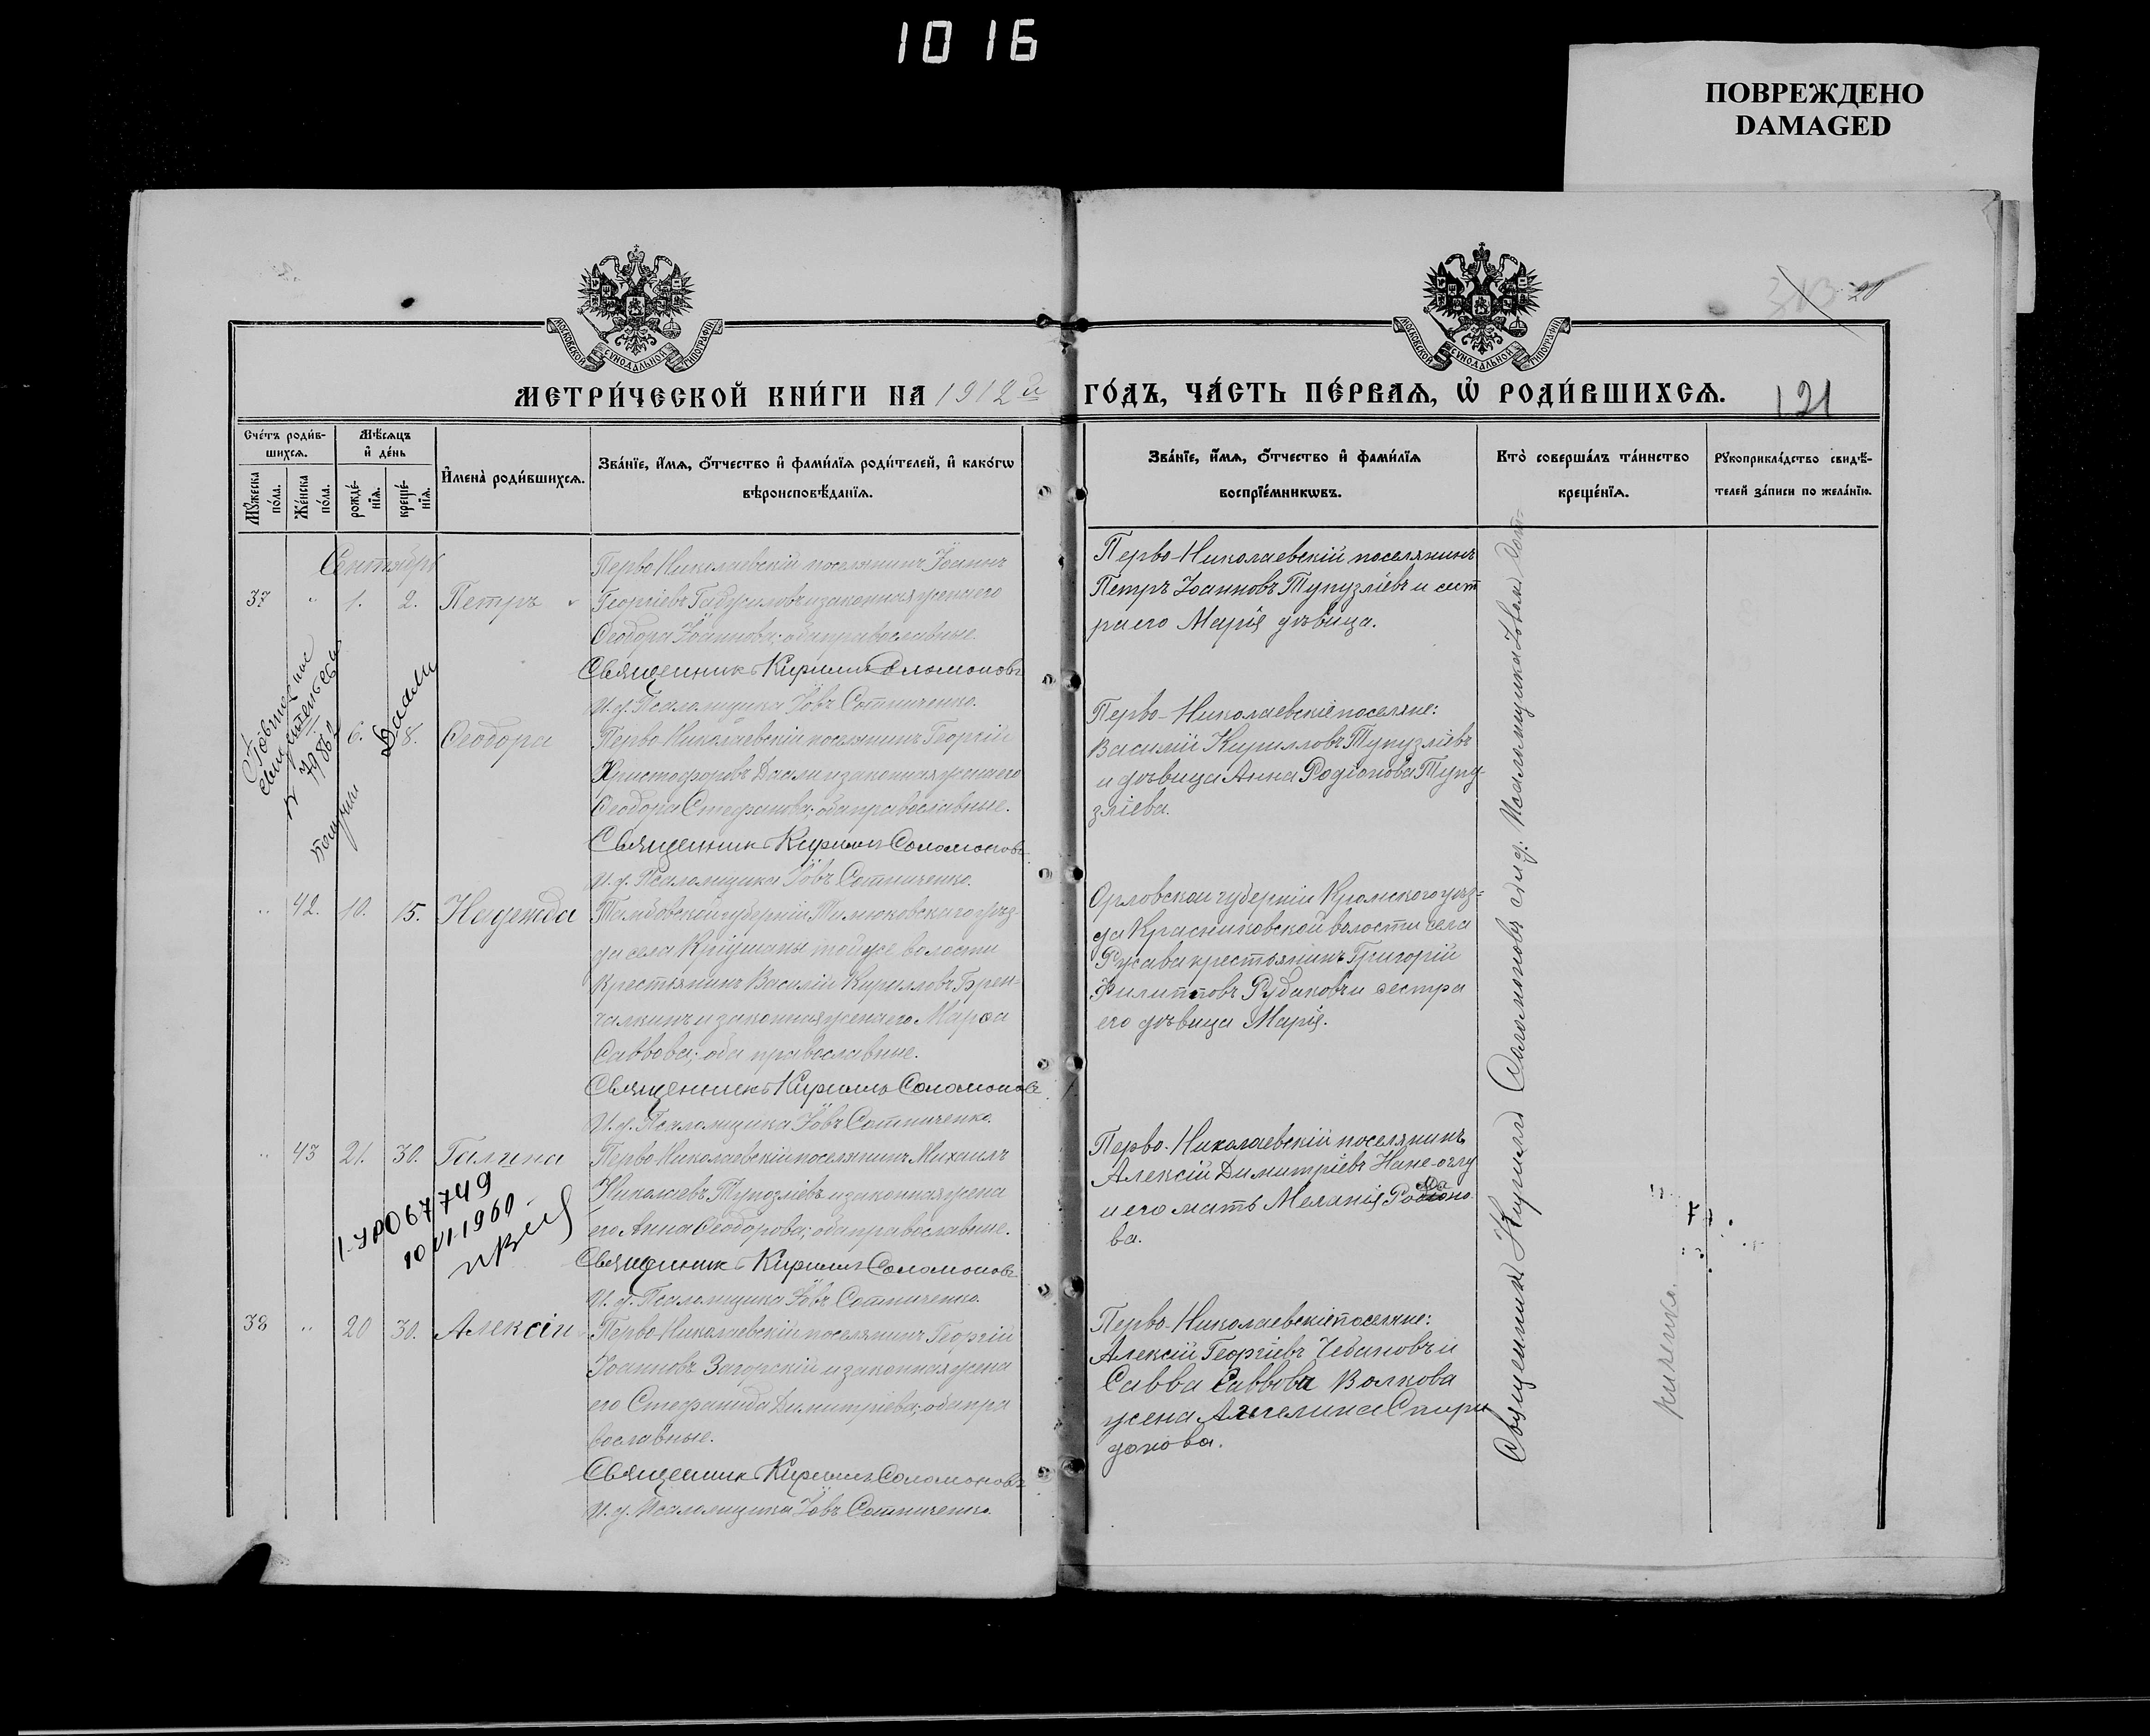 1016
ПОВРЕЖДЕНО
DAMAGED
МОСКОВСКОЙ СѴНОДАЛЬНОЙ ТИПОГРАФІИ
МОСКОВСКОЙ СѴНОДАЛЬНОЙ ТИПОГРАФІИ
МЕТРИ́ЧЕСКОЙ КНИ́ГИ НА 1912 й
ГО́ДЪ, ЧА́СТЬ ПЕ́РВАѦ, Ѡ҆ РОДИ́ВШИХСѦ.
121
Сче́тъ роди́в-
шихсѧ.
Мѣ́сѧцъ
и҆ де́нь
Мꙋ́жеска
по́ла.
Же́нска
по́ла.
рожде́-
нїѧ.
креще́-
нїѧ.
И҆мена̀ роди́вшихсѧ.
Зва́нїе, и҆́мѧ, ѻ҆́тчество и҆ фами́лїѧ роди́телей, и҆ како́гѡ
вѣроисповѣ́данїѧ.
Зва́нїе, и҆́мѧ, ѻ҆́тчество и҆ фами́лїѧ
воспрїе́мникѡвъ.
Кто̀ соверша́лъ та́инство
креще́нїѧ.
Рꙋкоприкла́дство свидѣ́-
телей за́писи по жела́нїю.
Сентябрь
37 " 1. 2. Петръ
Перво Николаевскій поселянинъ Іоаннъ
Георгіевъ и законная жена его
Ѳеодора Іоаннова; оба православные.
Священникъ Кириллъ Соломоновъ
И. д. Псаломщика Іовъ Сотниченко.
Перво-Николаевскій поселянинъ
Петръ Іоанновъ Тупузліевъ и сест
ра его Марія дѣвица.
6. 8. Ѳеодора
Даали
Перво Николаевскій поселянинъ Георгій
Христофоровъ Даали и законная жена его
Ѳеодора Стефанова; оба православные.
Священникъ Кириллъ Соломоновъ
И. д. Псаломщика Іовъ Сотниченко.
Перво-Николаевскіе поселяне:
Василій Кирилловъ Тупузліевъ
и дѣвица Анна Родіонова Тупу-
зліева.
" 42. 10. 15. Надежда
Тамбовской губерніи уѣз-
да села той же волости
крестьянинъ Василій Кирилловъ Брен-
чалкинъ и законная жена его Марѳа
Саввова; оба православные.
Священникъ Кириллъ Соломоновъ
И. д. Псаломщика Іовъ Сотниченко.
Орловской губерніи Кромского уѣз-
да Красниковской волости села
Русава крестьянинъ Григорій
Филипповъ Рудаковъ и сестра
его дѣвица Марія.
" 43 21. 30. Галина
Перво Николаевскій поселянинъ Михаилъ
Николаевъ Тупозліевъ и законная жена
его Анна Ѳеодорова; оба православные.
Священникъ Кириллъ Соломоновъ
И. д. Псаломщика Іовъ Сотниченко.
Перво-Николаевскій поселянинъ
Алексій Димитріевъ Нане-оглу
и его мать Меланія
ва.
067749
10 VI-1960
38 " 20 30. Алексій
Перво Николаевскій поселянинъ Георгій
Іоанновъ Загорскій и законная жена
его Стефанида Димитріева; оба пра
вославные.
Священникъ Кириллъ Соломоновъ
И. д. Псаломщика Іовъ Сотниченко.
Перво-Николаевскіе поселяне:
Алексій Георгіевъ Чебановъ и
Савва Саввова Волкова
жена Ангелина Спири
донова.
Священникъ Кириллъ Соломоновъ и. д. Псаломщика Іовъ Сот-
ниченко.